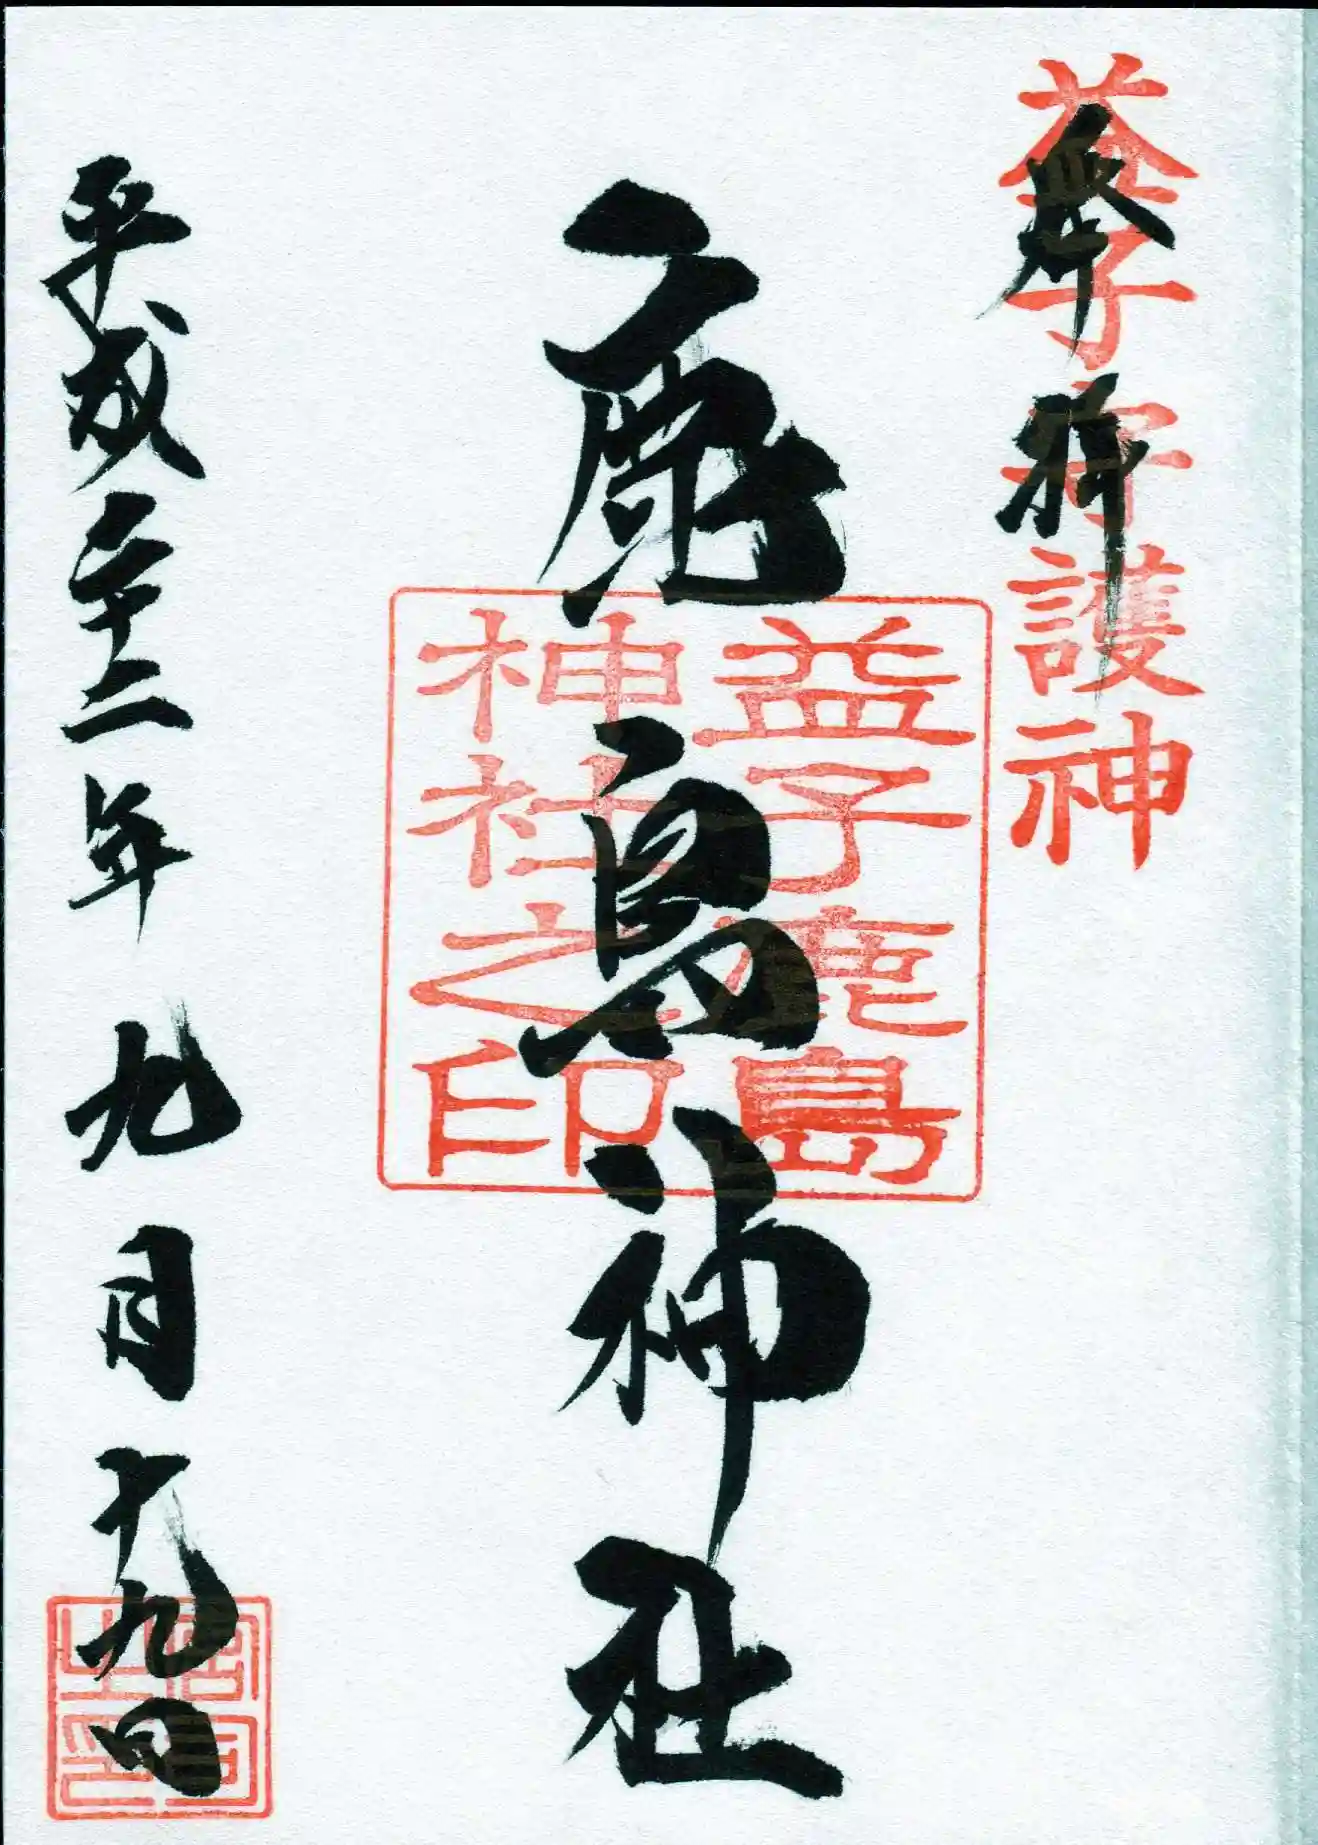 益子守護神
奉拝
鹿島神社
益子鹿島
神社之印
平成二十二年九月十九日
宮司
之印